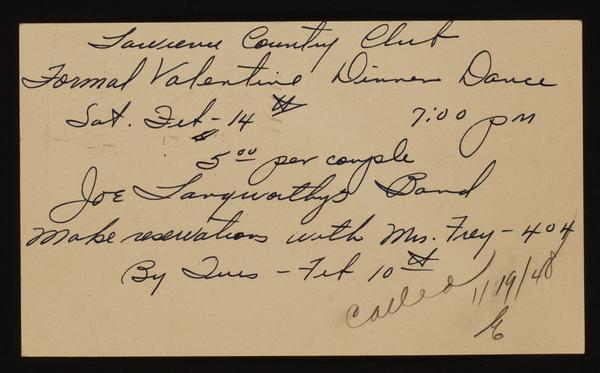 Lawrence Country Club
Formal Valentine Dinner Dance
Sat. Feb - 14th 7:00 pm
$5.00 per couple
Joe Langworthy's Band
Make reservations with Mrs. Frey - 404
By Tues - Feb 10th
called 1/19/48